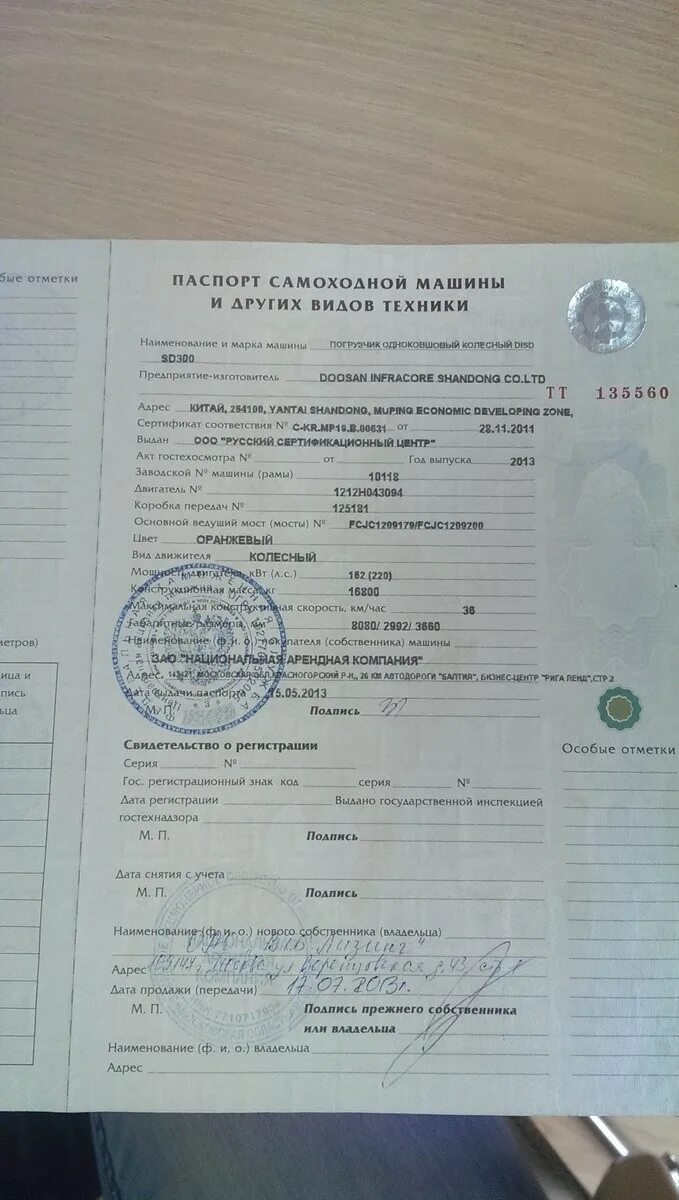 бые отметки
ПАСПОРТ САМОХОДНОЙ МАШИНЫ
И ДРУГИХ ВИДОВ ТЕХНИКИ
Наименование и марка машины ПОГРУЗЧИК ОДНОКОВШОВЫЙ КОЛЕСНЫЙ DISD
SD300
Предприятие-изготовитель DOOSAN INFRACORE SHANDONG CO.LTD
ТТ 135560
Адрес КИТАЙ, 264100, YANTAI SHANDONG, MUPING ECONOMIC DEVELOPING ZONE,
Сертификат соответствия № C-KR.MP19.B.00631 от 28.11.2011
Выдан ООО "РУССКИЙ СЕРТИФИКАЦИОННЫЙ ЦЕНТР"
Акт гостехосмотра № от Год выпуска 2013
Заводской № машины (рамы) 10118
Двигатель № 1212H043094
Коробка передач № 125181
Основной ведущий мост (мосты) № FCJC1209179/FCJC1209200
Цвет ОРАНЖЕВЫЙ
Вид движителя КОЛЕСНЫЙ
Мощность двигателя, кВт (л.с.) 162 (220)
Конструкционная масса, кг 16800
Максимальная конструктивная скорость, км/час 36
Габаритные размеры, мм 8080/ 2992/ 3660
Наименование (ф. и о.) покупателя (собственника) машины
ЗАО "НАЦИОНАЛЬНАЯ АРЕНДНАЯ КОМПАНИЯ"
Адрес МОСКОВСКАЯ ОБЛ, КРАСНОГОРСКИЙ Р-Н,, 26 КМ АВТОДОРОГИ "БАЛТИЯ", БИЗНЕС-ЦЕНТР "РИГА ЛЕНД",СТР 2
Дата выдачи паспорта 5.05.2013
М. П. Подпись
метров)
ица и
пись
ьца
Свидетельство о регистрации
Серия № 
Гос. регистрационный знак код серия №
Дата регистрации Выдано государственной инспекцией
гостехнадзора
М. П. Подпись
Особые отметки
Дата снятия с учета
М. П. Подпись
Наименование (ф. и. о.) нового собственника (владельца)
ВТБ Лизинг"
Адрес 109147, Москва ул Воронцовская д.43/
Дата продажи (передачи) 17.07.2013г.
М. П. Подпись прежнего собственника
или владельца
Наименование (ф. и. о.) владельца
Адрес